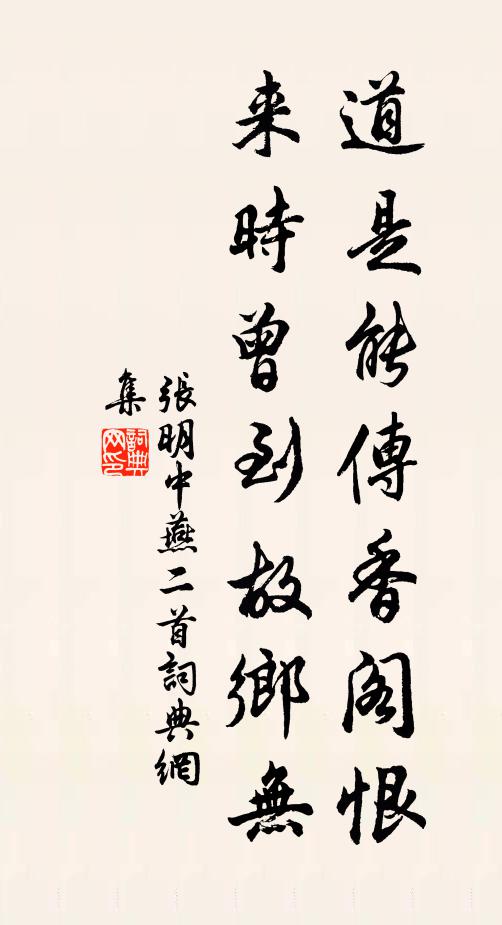 道是能傳香閣恨
来時曾到故鄉無
張明中燕二首詞典網
集
詞典
网印